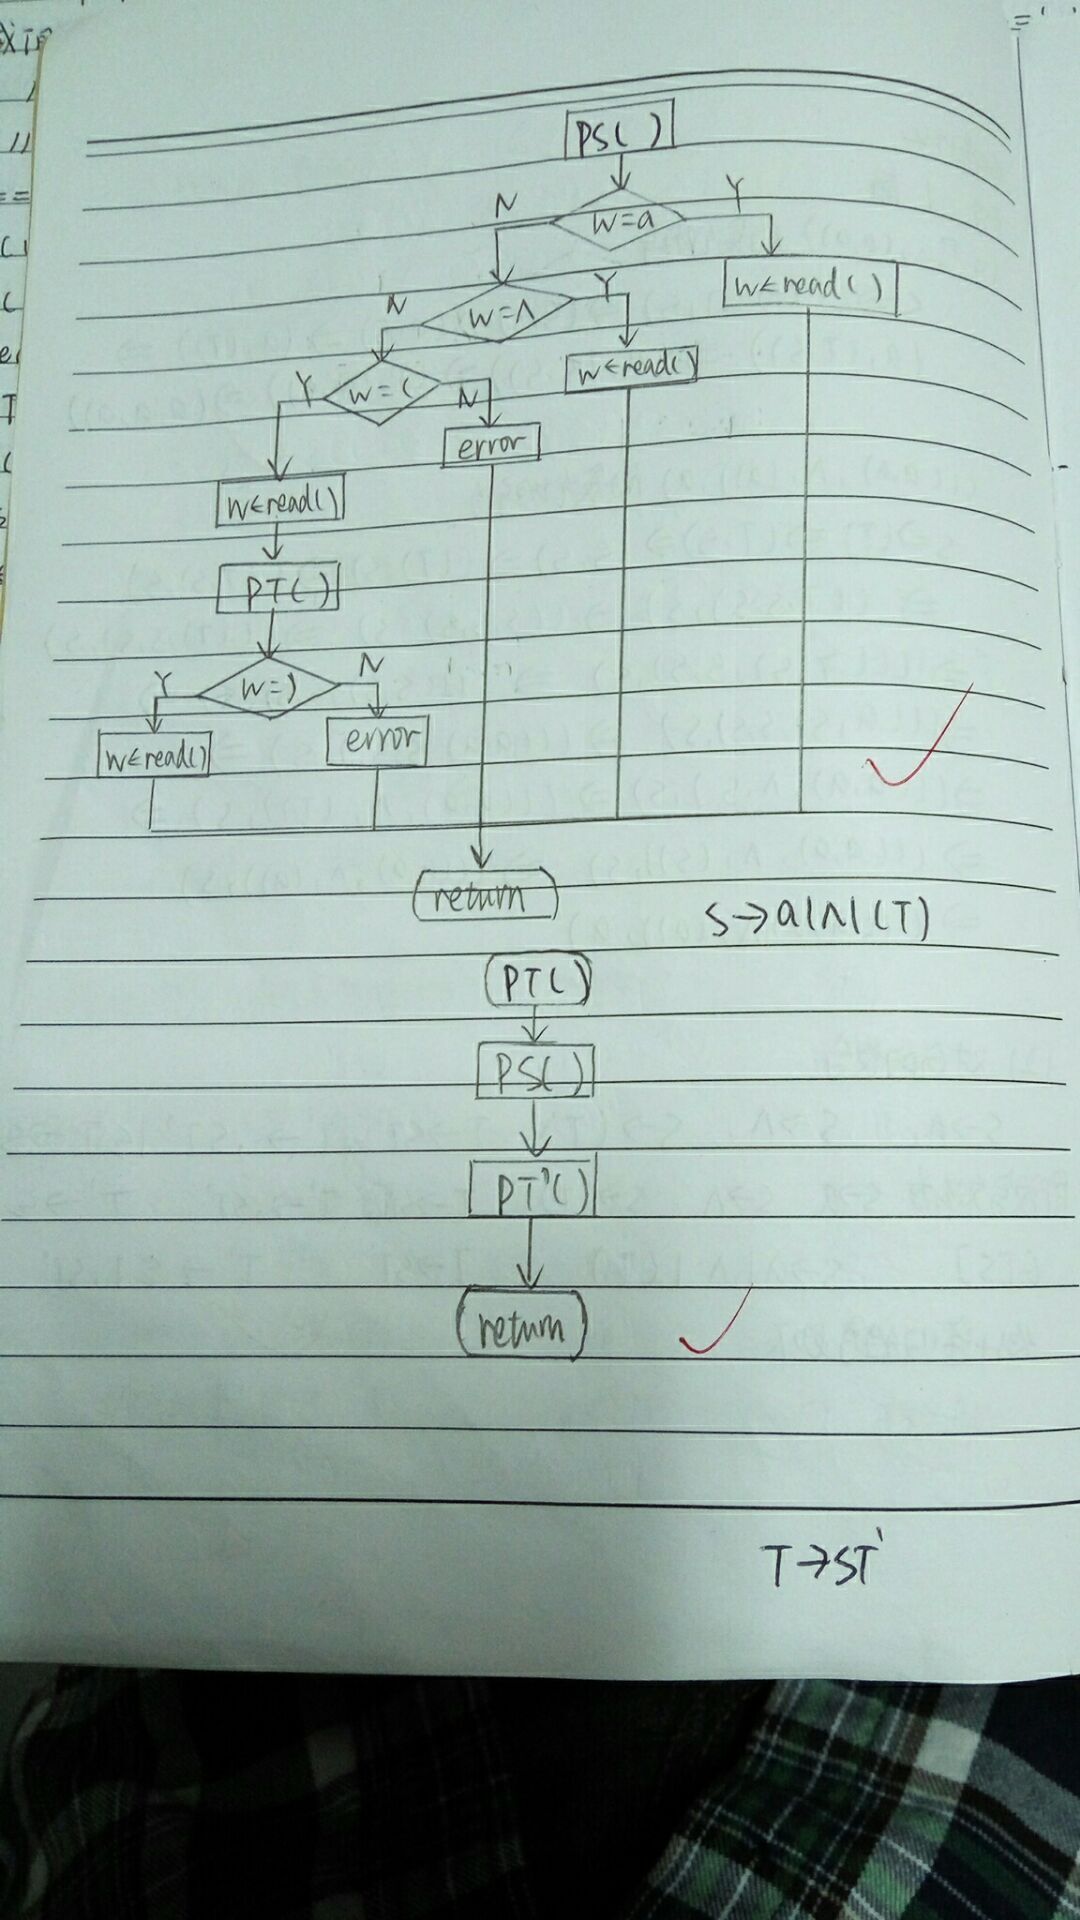 PS( )
N w=a Y
w←read( )
N w=∧ Y
w←read()
Y w=( N
error
w←read()
PT( )
Y w=) N
w←read()
error
return
S→a|∧|(T)
PT( )
PS( )
PT'( )
return
T→ST'